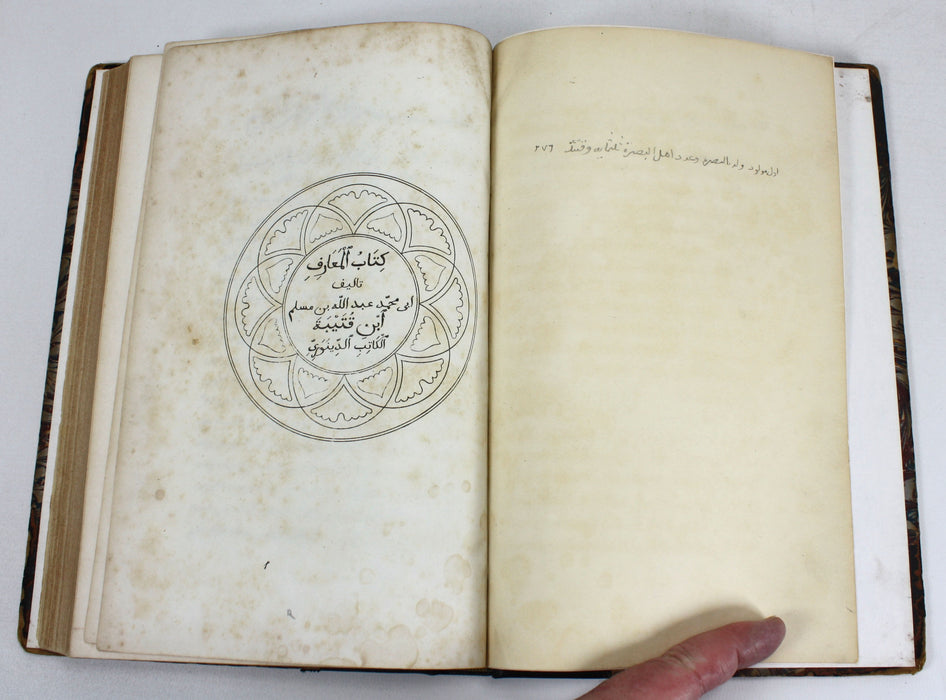 كِتَابُ ٱلْمَعَارِفِ
تاليف
أبى محمّد عبد اللّه بن مسلم
ٱبْن قُتَيْبَةَ
ٱلْكَاتِبِ ٱلدِّينَوَرِيّ
اول مولود ولد بالبصرة وعدد اهل البصرة ٢٧٦